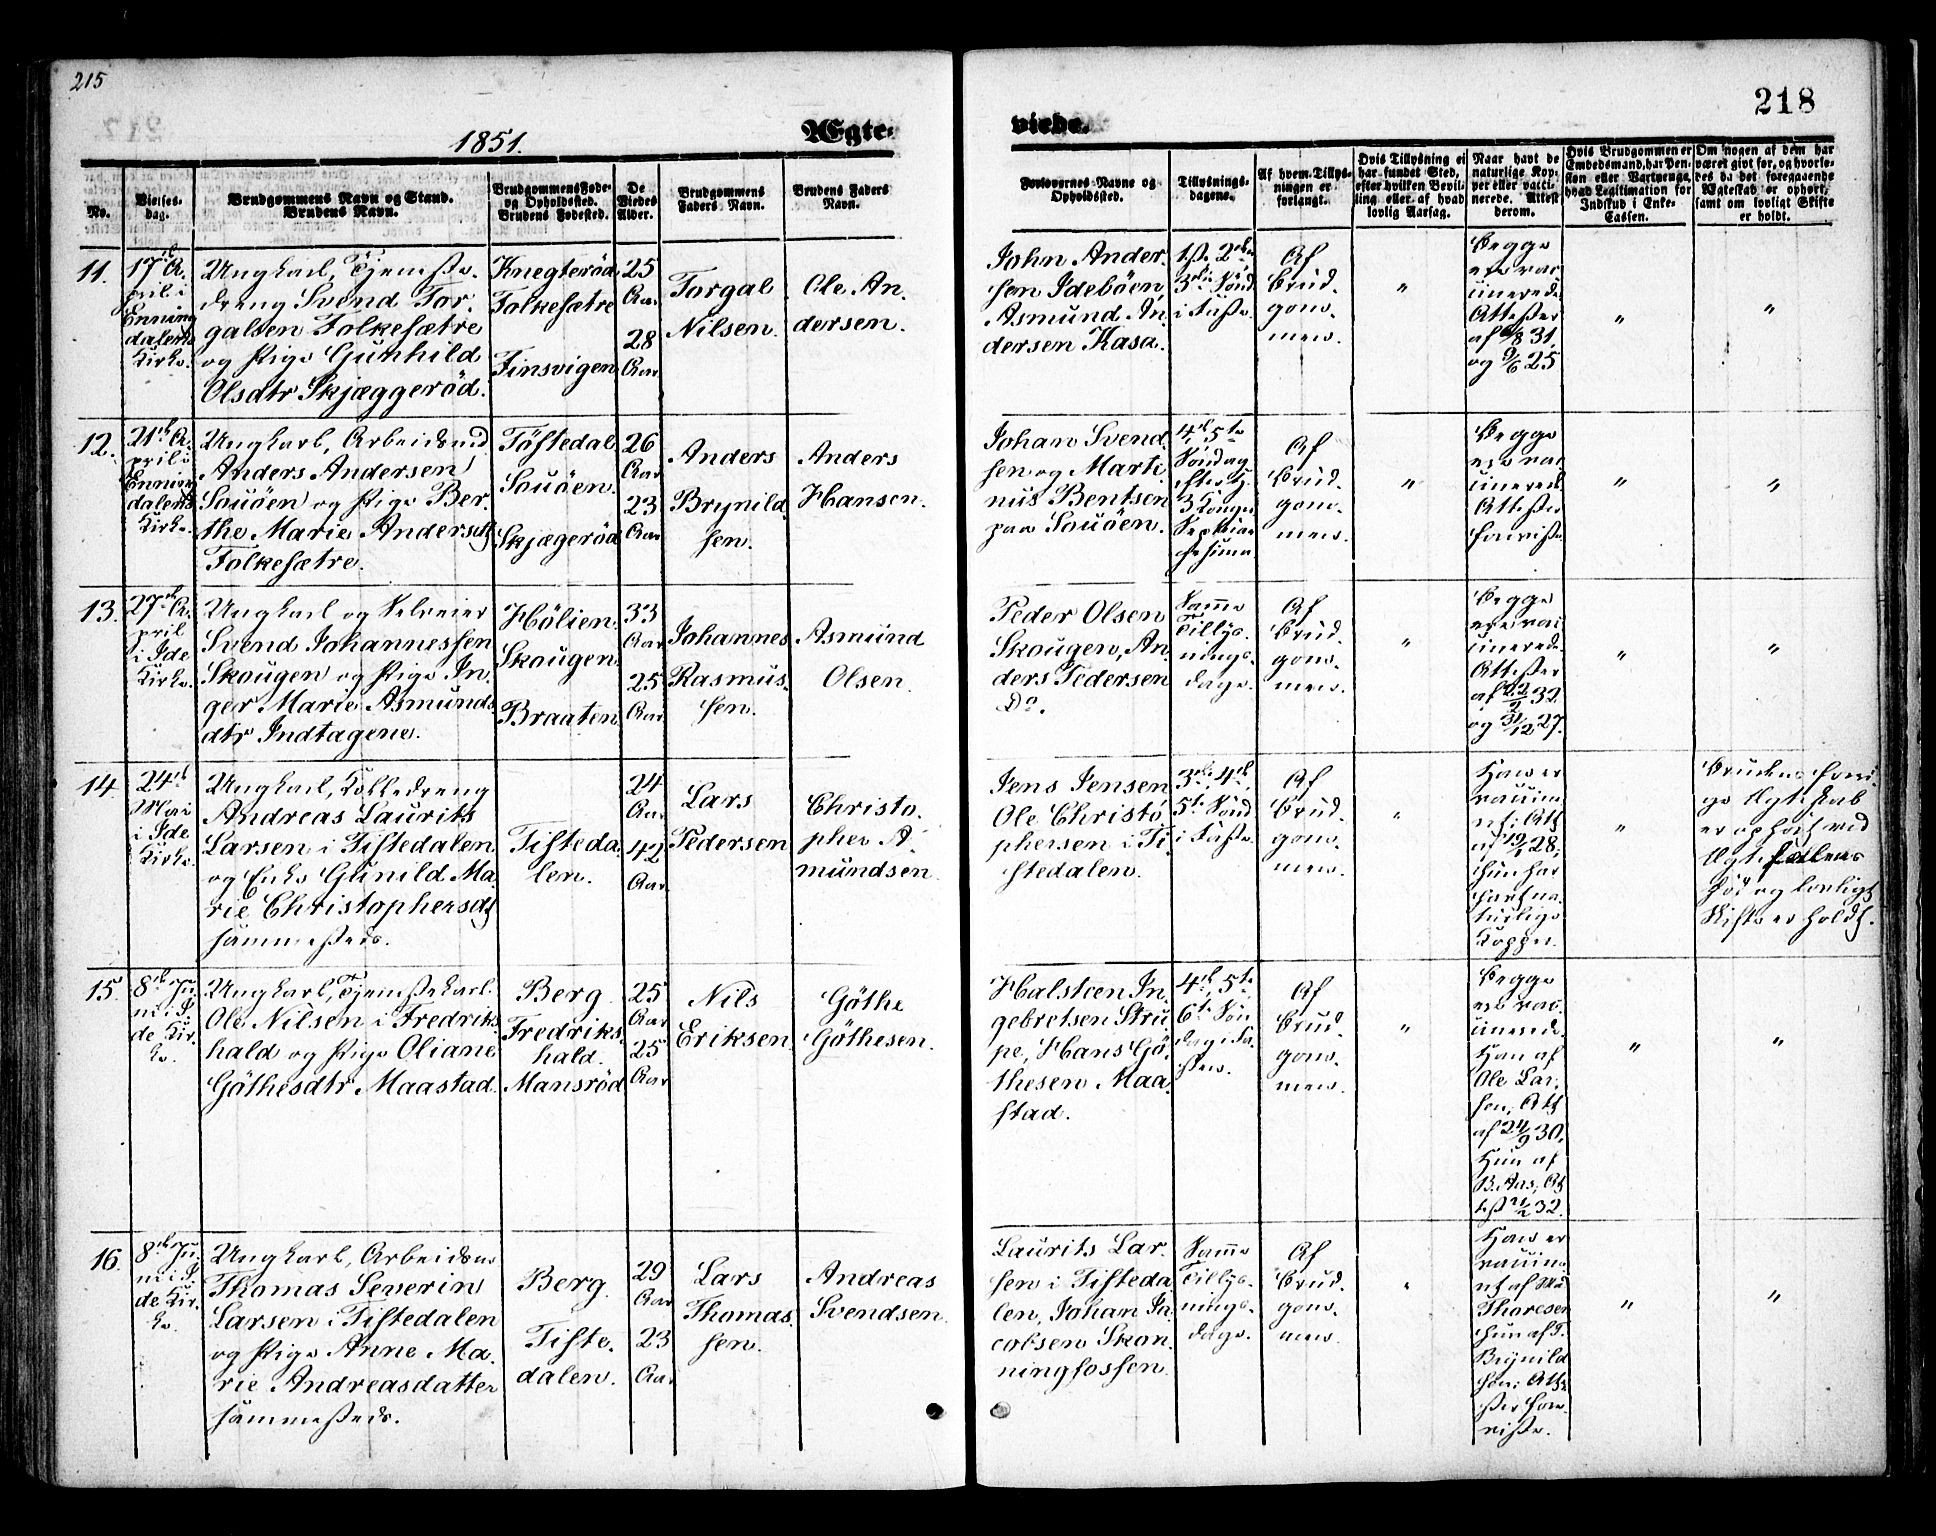 215
218
1851.
Ægte-
viede.
No.
Vielses-
dag.
Brudgommens Navn og Stand.
Brudens Navn.
Brudgommens Føde-
og Opholdssted.
Brudens Fødested.
De
Viedes
Alder.
Brudgommens
Faders Navn.
Brudens Faders
Navn.
Forlovernes Navne og
Opholdssted.
Tillysnings-
dagene.
Af hvem Tillys-
ningen er
forlangt.
Hvis Tillysning ei
har fundet Sted,
efter hvilken Bevil-
ling eller af hvad
lovlig Aarsag.
Naar havt de
naturlige Kop-
per eller vacci-
nerede. Attest
derom.
Hvis Brudgommen er
Embedsmand, har Pen-
sion eller Vartpenge,
hvad Legitimation for
Indskud i Enke-
Cassen.
Om nogen af dem har
været givt før, og hvorle-
des da det foregaaende
Ægteskab er ophørt,
samt om lovligt Skifte
er holdt.
11.
17de A-
pril i
Enning
dalens
Kirke.
Ungkarl, Tjeneste-
dreng Svend Tor-
galsen Folkesætre
og Pige Gunhild
Olsdtr Skjæggeröd.
Knegteröd
Folkesætre
Finsvigen
25
Aar
28
Aar
Torgal
Nilsen.
Ole An-
dersen.
John Ander-
sen Ideböen,
Asmund An-
dersen Kasa.
1ste 2den
3die Sönd.
i Faste.
Af
Brud-
gom-
men.
"
Begge
ere vac-
cinerede
Attester
af 6/8 31
og 9/6 25
"
"
12.
21de A-
pril i
Enning
dalens
Kirke.
Ungkarl, Arbeidsmd
Anders Andersen
Souöen og Pige Ber-
the Marie Andersdtr
Folkesætre.
Töstedal
Souöen.
Skjægeröd
26
Aar
23
Aar
Anders
Brynild-
sen.
Anders
Hansen.
Johan Svend-
sen og Marti-
nus Bentsen
paa Souöen.
4de, 5te
Söndag
efter H.
3 Konger
Septuage-
sesima
Af
Brud-
gom-
men.
"
Begge
ere vac-
cinerede
Attester
foreviste
"
"
13.
27de A-
pril
i Ide
Kirke.
Ungkarl og Selveier
Svend Johannessen
Skougen og Pige In-
ger Marie Asmunds-
dtr Indtagene.
Hölien
Skougen
Braaten
33
Aar
25
Aar
Johannes
Rasmus-
sen.
Asmund
Olsen.
Peder Olsen
Skougen, An-
ders Pedersen
Do.
Samme
Tillys-
nings-
dage.
Af
Brud-
gom-
men.
"
Begge
ere vac-
cinerede
Attester
af 22/2 32
og 31/12 27.
"
"
14.
24de
Mai
i Ide
Kirke.
Ungkarl, Kobbedreng
Andreas Laurits
Larsen i Tistedalen
og Enke Gunild Ma-
rie Christophersdtr
sammesteds.
Tisteda-
len.
24
Aar
42
Aar
Lars
Pedersen
Christo-
pher A-
mundsen
Jens Jensen
Ole Christo-
phersen i Ti-
stedalen.
3die, 4de,
5te Sönd
i Faste.
Af
Brud-
gom-
men.
"
Han er
vaccine-
ret; Att
af 19/1 28,
Hun har
havt na-
turlige
Kopper.
"
Brudens fori-
ge Ægteskab
er ophört ved
Ægtefælens
Död og lovligt
Skifte er holdt.
15.
8de Ju-
ni i I-
de Kir-
ke.
Ungkarl, Tjenestekarl
Ole Nilsen i Fredriks-
hald og Pige Oliane
Göthesdtr Maastad.
Berg
Fredriks-
hald.
Mansröd
25
Aar
25
Aar
Nils
Eriksen.
Göthe
Göthesen.
Halsteen In-
gebretsen Stru-
pe, Hans Gö-
thesen Maa-
stad.
4de, 5te,
6te Sön-
dag i Fa-
sten.
Af
Brud-
gom-
men.
"
Begge
ere vac-
cinerede
Han af
Ole Lar-
sen, Att
af 24/9 30,
Hun af
B. Aas, At-
test 21/2 32.
"
"
16.
8de Ju-
ni i I-
de Kir-
ke.
Ungkarl, Arbeidsm
Thomas Severin
Larsen i Tistedalen
og Pige Anne Ma-
rie Andreasdatter
sammesteds.
Berg
Tiste-
dalen.
29
Aar
23
Aar
Lars
Thomas-
sen.
Andreas
Svendsen.
Laurits Lar-
sen i Tisteda-
len, Johan Ja-
cobsen Skon-
ningfossen.
Samme
Tillys-
nings-
dage.
Af
Brud-
gom-
men.
"
Han er
vaccine-
ret af
Thoresen
Hun af T.
Brynild-
sen; Atte-
ster fore-
viste.
"
"